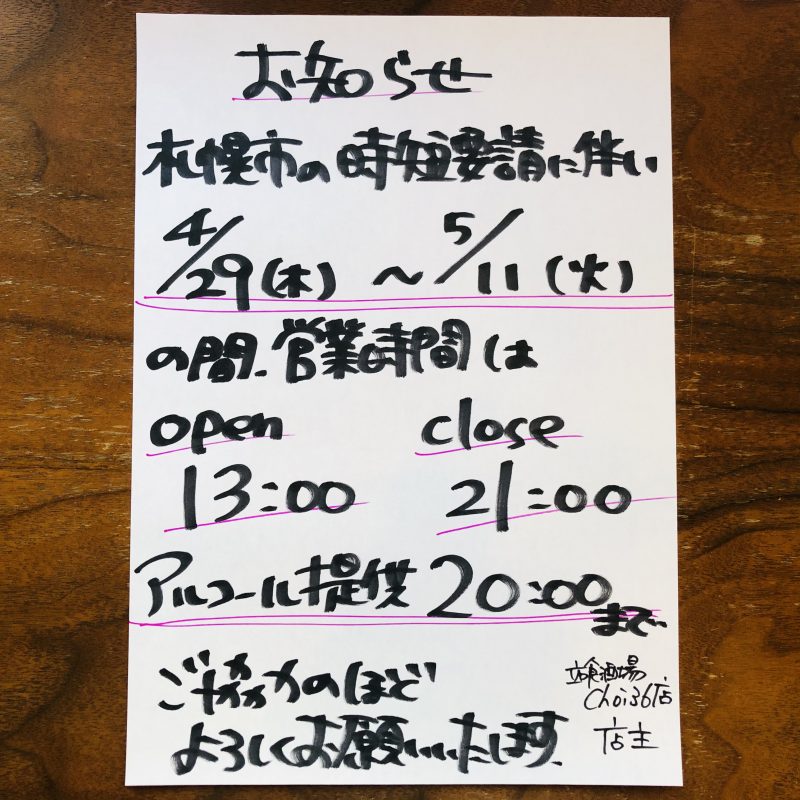 お知らせ
札幌市の時短要請に伴い
4/29(木)～5/11(火)
の間、営業時間は
open close
13:00 21:00
アルコール提供20:00まで
ご協力のほど
よろしくお願いいたします。
立食酒場
Choi36店
店主